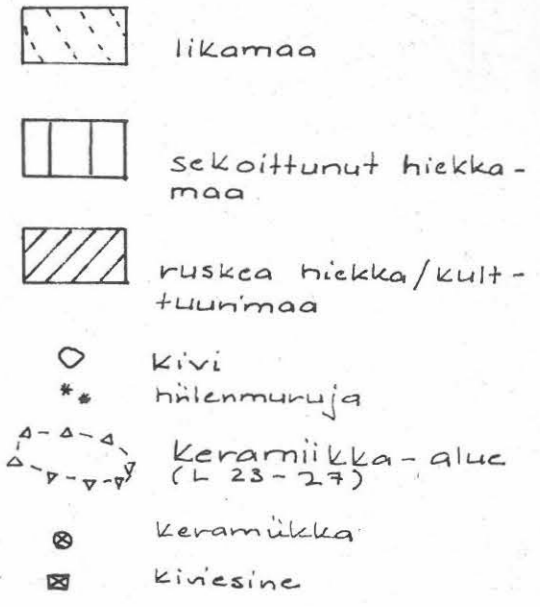 likamaa
sekoittunut hiekka-
maa
ruskea hiekka/kult-
tuurimaa
kivi
hiilenmuruja
keramiikka-alue
(L 23-27)
keramiikka
kiviesine